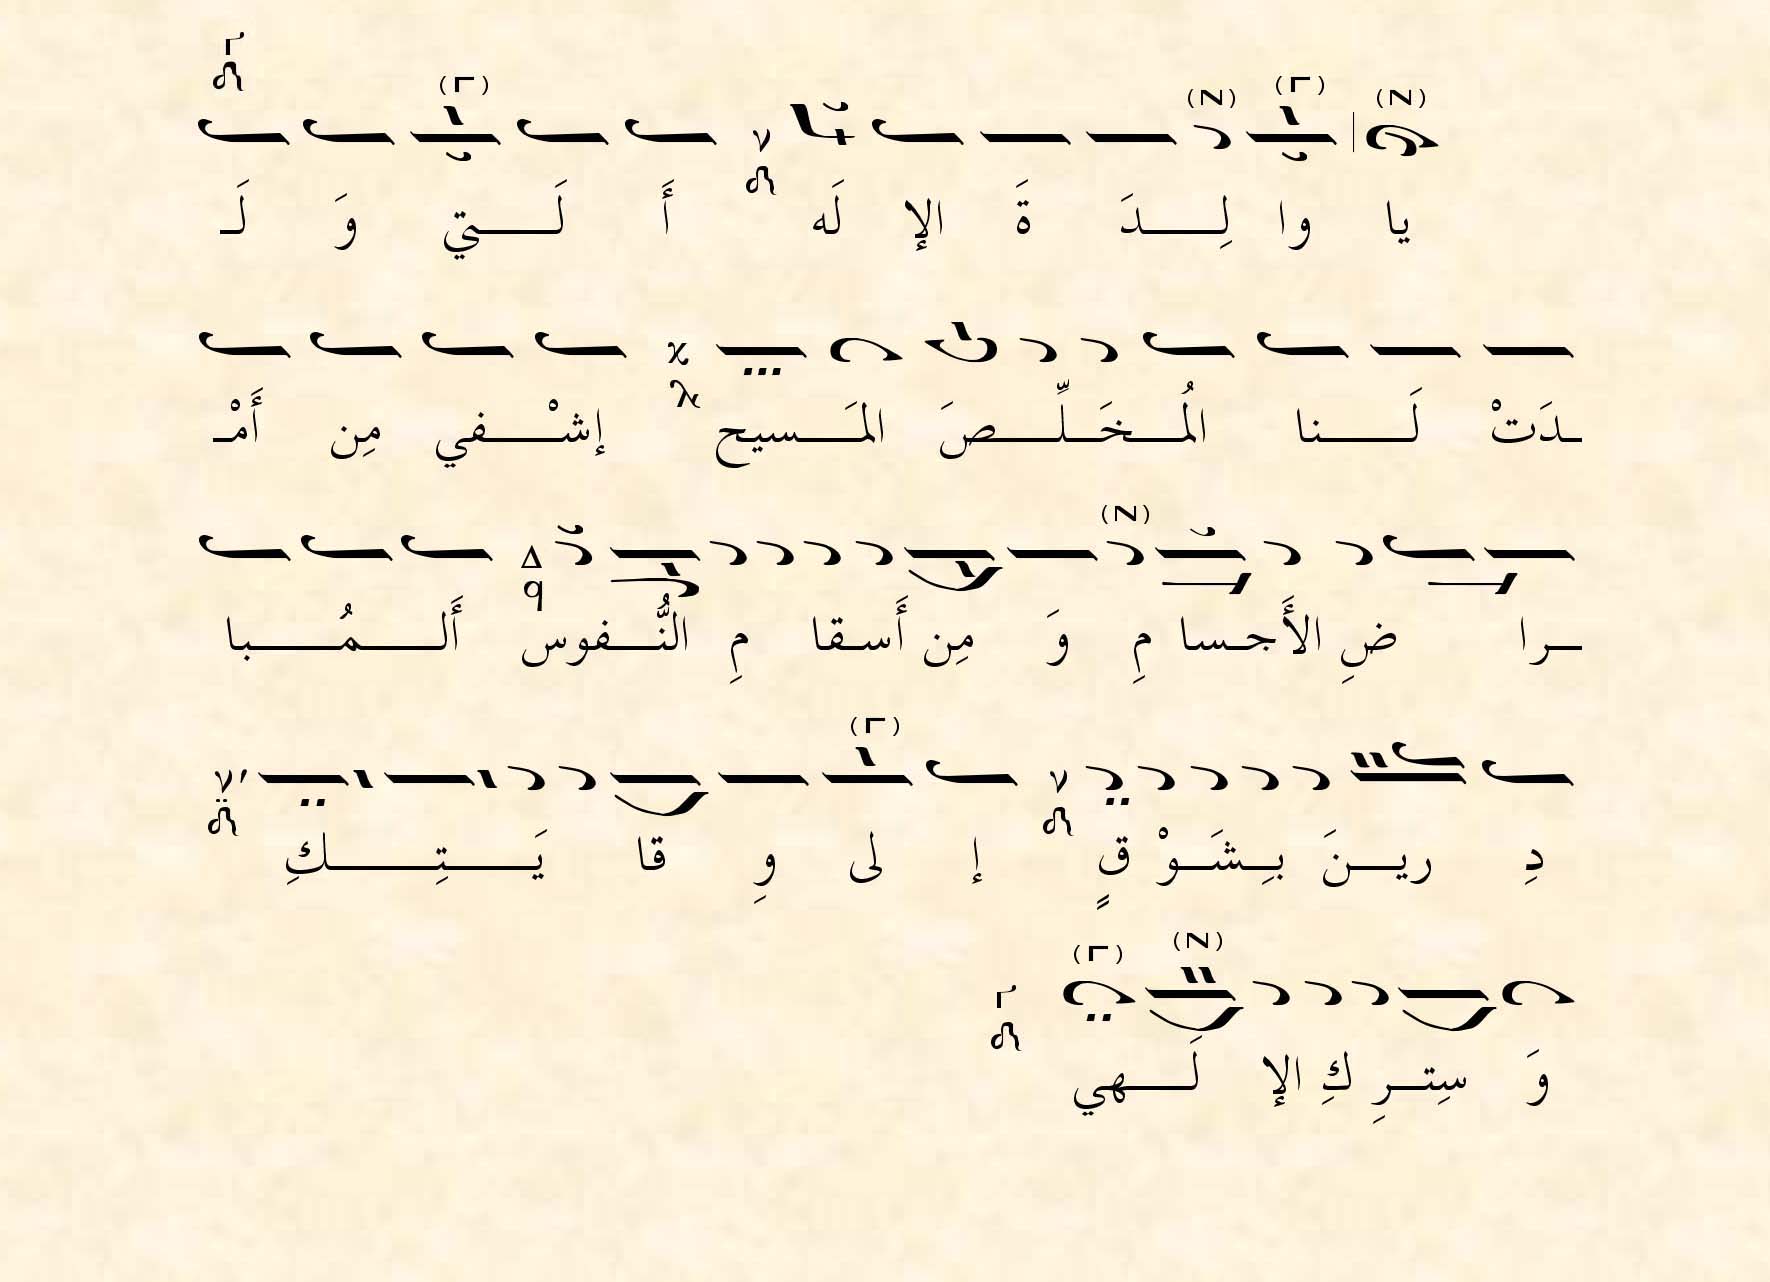 يا وا لِـــدَ ةَ الإ لَه أَ لَـــتي وَ لَـ
ـدَتْ لَـــنا المُـــخَـــلِّـــصَ المَـــسيح إشْـــفي مِن أَمْـ
ـرا ضِ الأَجـسا مِ وَ مِن أَسـقا مِ النُّـــفوس أَلـــمُـــبا
دِ ريـــنَ بِـشَـــوْ قٍ إ لى وِ قا يَـــتِـــكِ
وَ سِتـــرِ كِ الإ لَـــهي